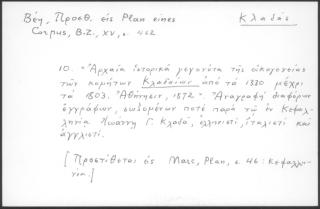 Βέη, Προσθ. εἰς Plan eines
Corpus, B.Z., XV, σ. 462
Κλαδᾶς
10. - "Ἀρχαῖα ἱστορικὰ γεγονότα τῆς οἰκογενείας
τῶν κομήτων Κλαδαίων ἀπὸ τὰ 1330 μέχρι
τὰ 1803. Ἀθήνησιν, 1872". Ἀναγραφὴ διαφόρων
ἐγγράφων, σωζομένων ποτὲ παρὰ τῷ ἐν Κεφαλ-
ληνίᾳ Ἰωάννῃ Γ. Κλαδᾷ, ἑλληνιστί, ἰταλιστὶ καὶ
ἀγγλιστί.
[Προστίθεται εἰς Marc, Plan, σ. 46: Κεφαλλη-
νία.]